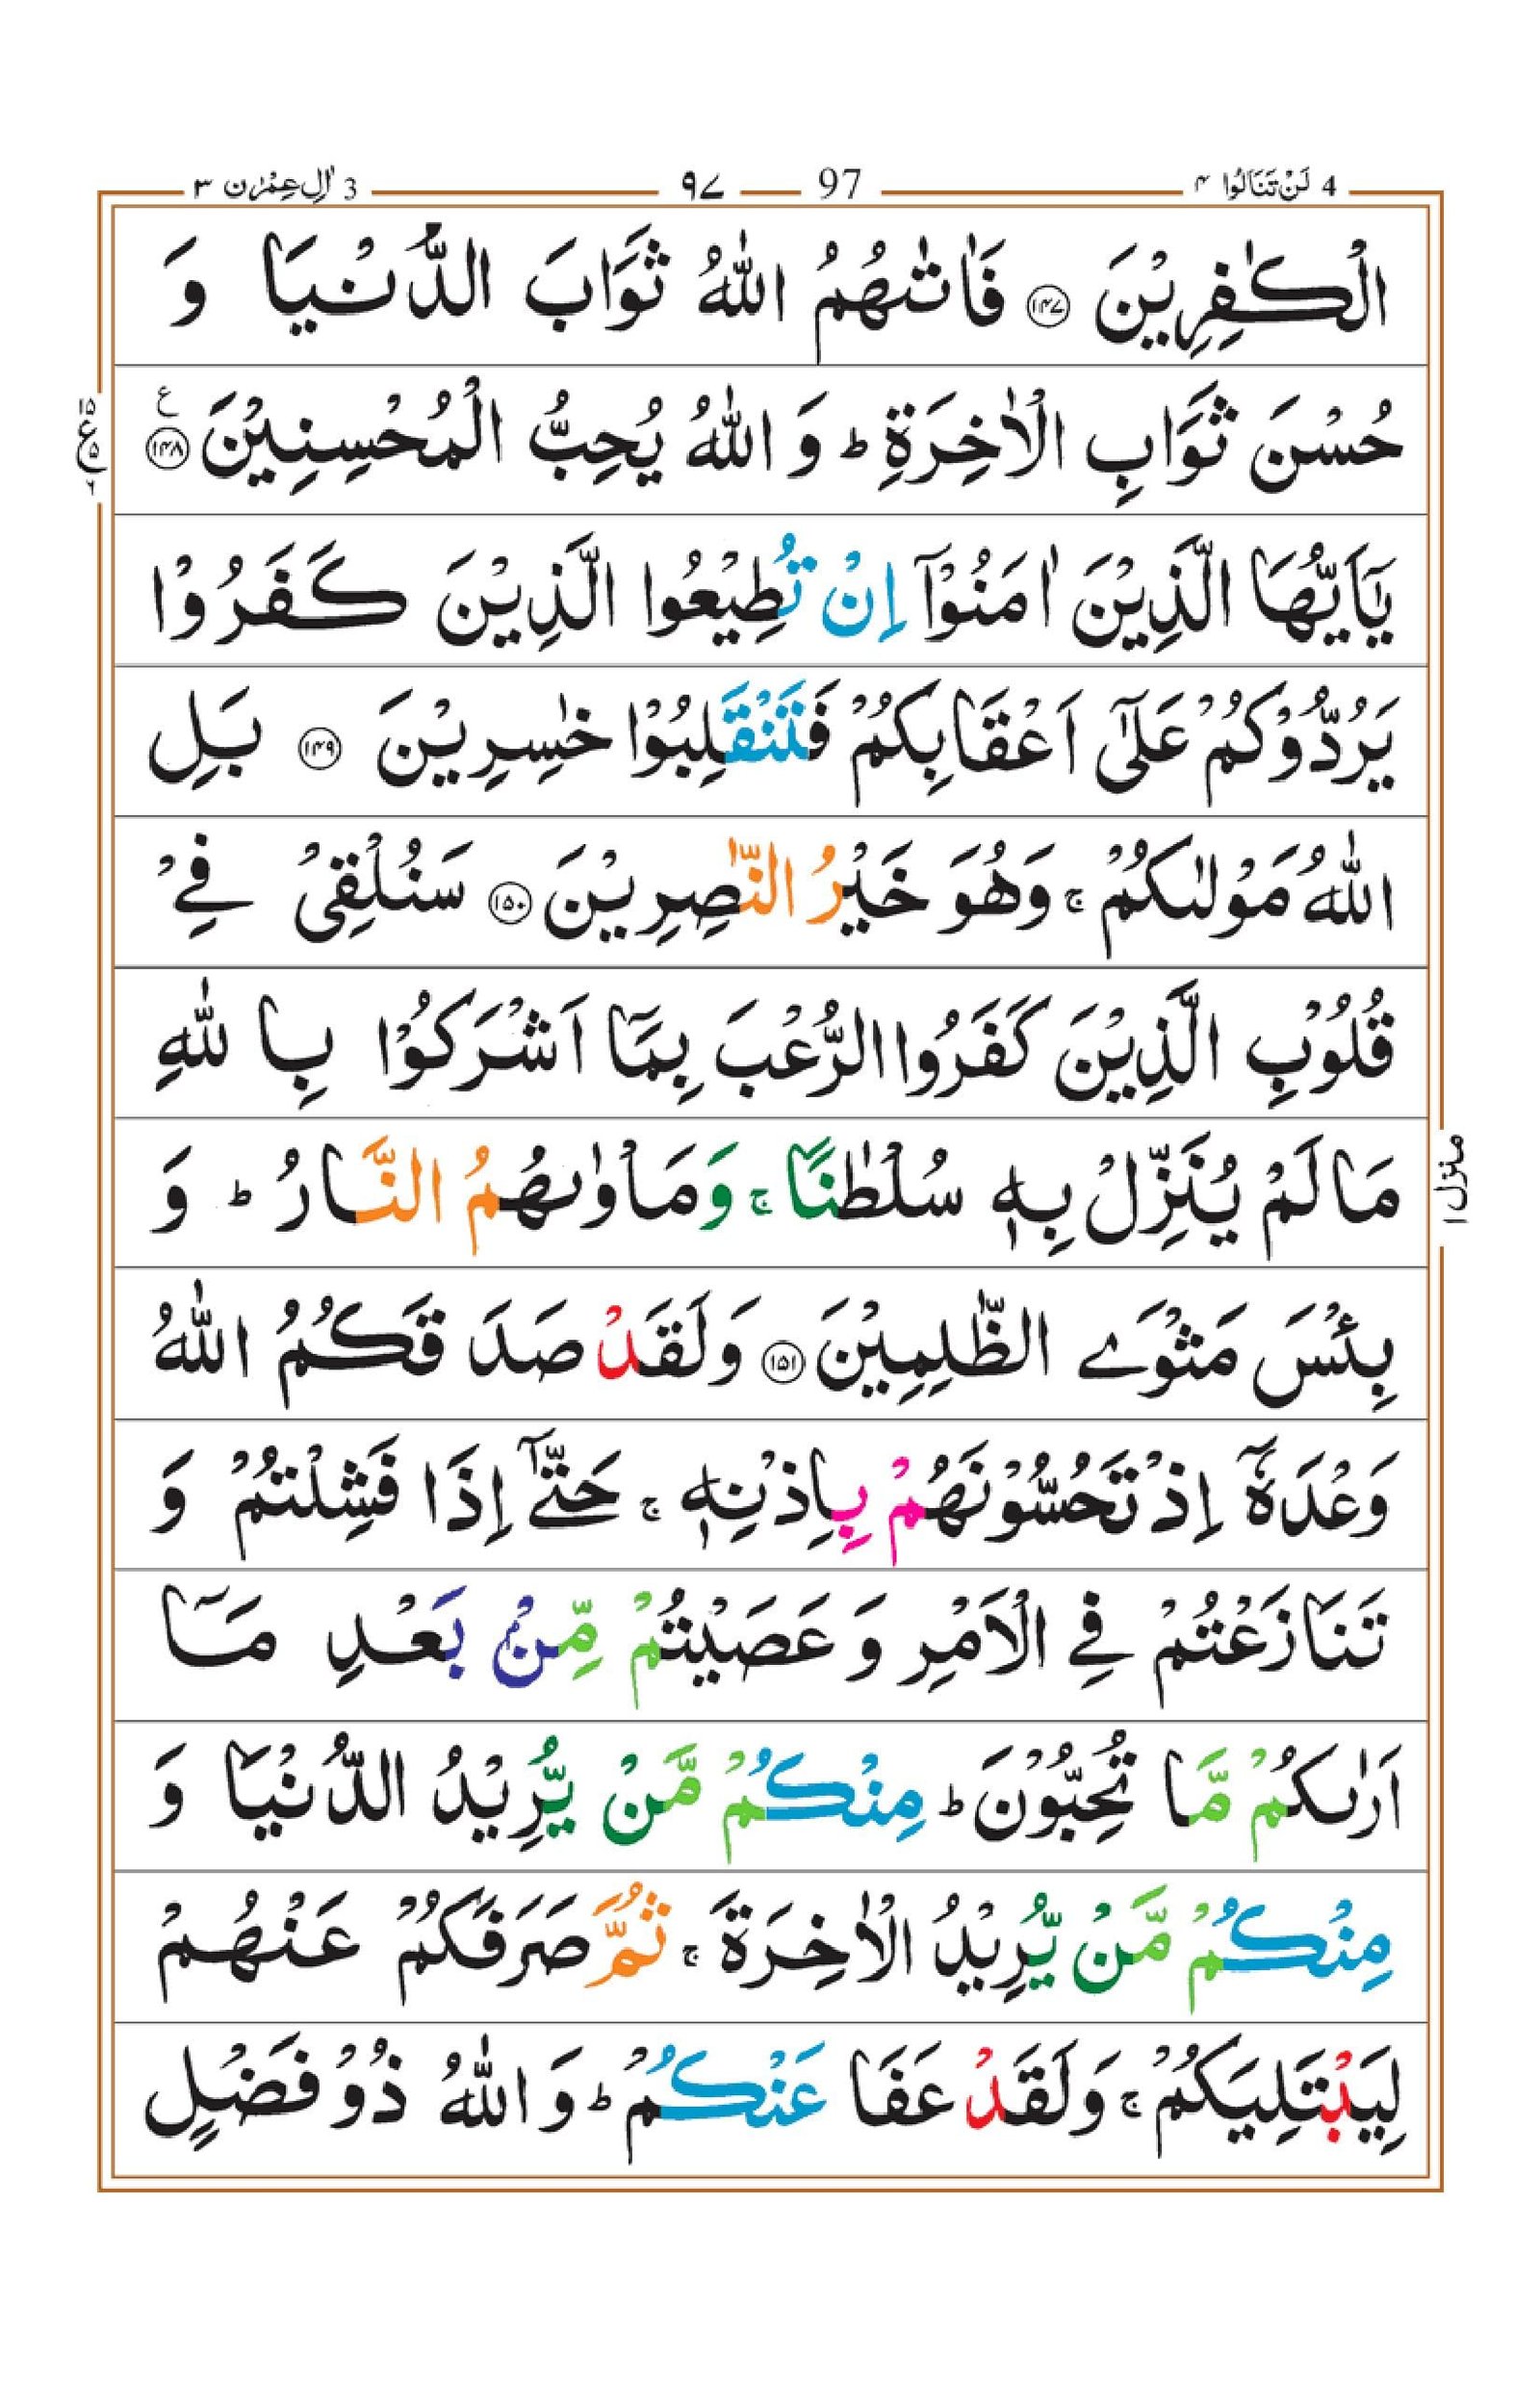 4 لَنْ تَنَالُوا ۴ 97 ۹۷ 3 اٰلِ عِمْرٰن ۳
الْكٰفِرِيْنَ ﴿۱۴۷﴾ فَاٰتٰىهُمُ اللّٰهُ ثَوَابَ الدُّنْيَا وَ
حُسْنَ ثَوَابِ الْاٰخِرَةِ ؕ وَ اللّٰهُ يُحِبُّ الْمُحْسِنِيْنَ ﴿۱۴۸﴾ ع
۱۵ ع ۵ ۶
يٰۤاَيُّهَا الَّذِيْنَ اٰمَنُوْۤا اِنْ تُطِيْعُوا الَّذِيْنَ كَفَرُوْا
يَرُدُّوْكُمْ عَلٰۤى اَعْقَابِكُمْ فَتَنْقَلِبُوْا خٰسِرِيْنَ ﴿۱۴۹﴾ بَلِ
اللّٰهُ مَوْلٰىكُمْ ۚ وَهُوَ خَيْرُ النّٰصِرِيْنَ ﴿۱۵۰﴾ سَنُلْقِىْ فِىْ
قُلُوْبِ الَّذِيْنَ كَفَرُوا الرُّعْبَ بِمَاۤ اَشْرَكُوْا بِاللّٰهِ
مَا لَمْ يُنَزِّلْ بِهٖ سُلْطٰنًا ۚ وَمَاْوٰىهُمُ النَّارُ ؕ وَ
بِئْسَ مَثْوَى الظّٰلِمِيْنَ ﴿۱۵۱﴾ وَلَقَدْ صَدَقَكُمُ اللّٰهُ
وَعْدَهٗۤ اِذْ تَحُسُّوْنَهُمْ بِاِذْنِهٖ ۚ حَتّٰۤى اِذَا فَشِلْتُمْ وَ
تَنَازَعْتُمْ فِى الْاَمْرِ وَ عَصَيْتُمْ مِّنْۢ بَعْدِ مَاۤ
اَرٰىكُمْ مَّا تُحِبُّوْنَ ؕ مِنْكُمْ مَّنْ يُّرِيْدُ الدُّنْيَا وَ
مِنْكُمْ مَّنْ يُّرِيْدُ الْاٰخِرَةَ ۚ ثُمَّ صَرَفَكُمْ عَنْهُمْ
لِيَبْتَلِيَكُمْ ۚ وَلَقَدْ عَفَا عَنْكُمْ ؕ وَ اللّٰهُ ذُوْ فَضْلٍ
منزل ۱